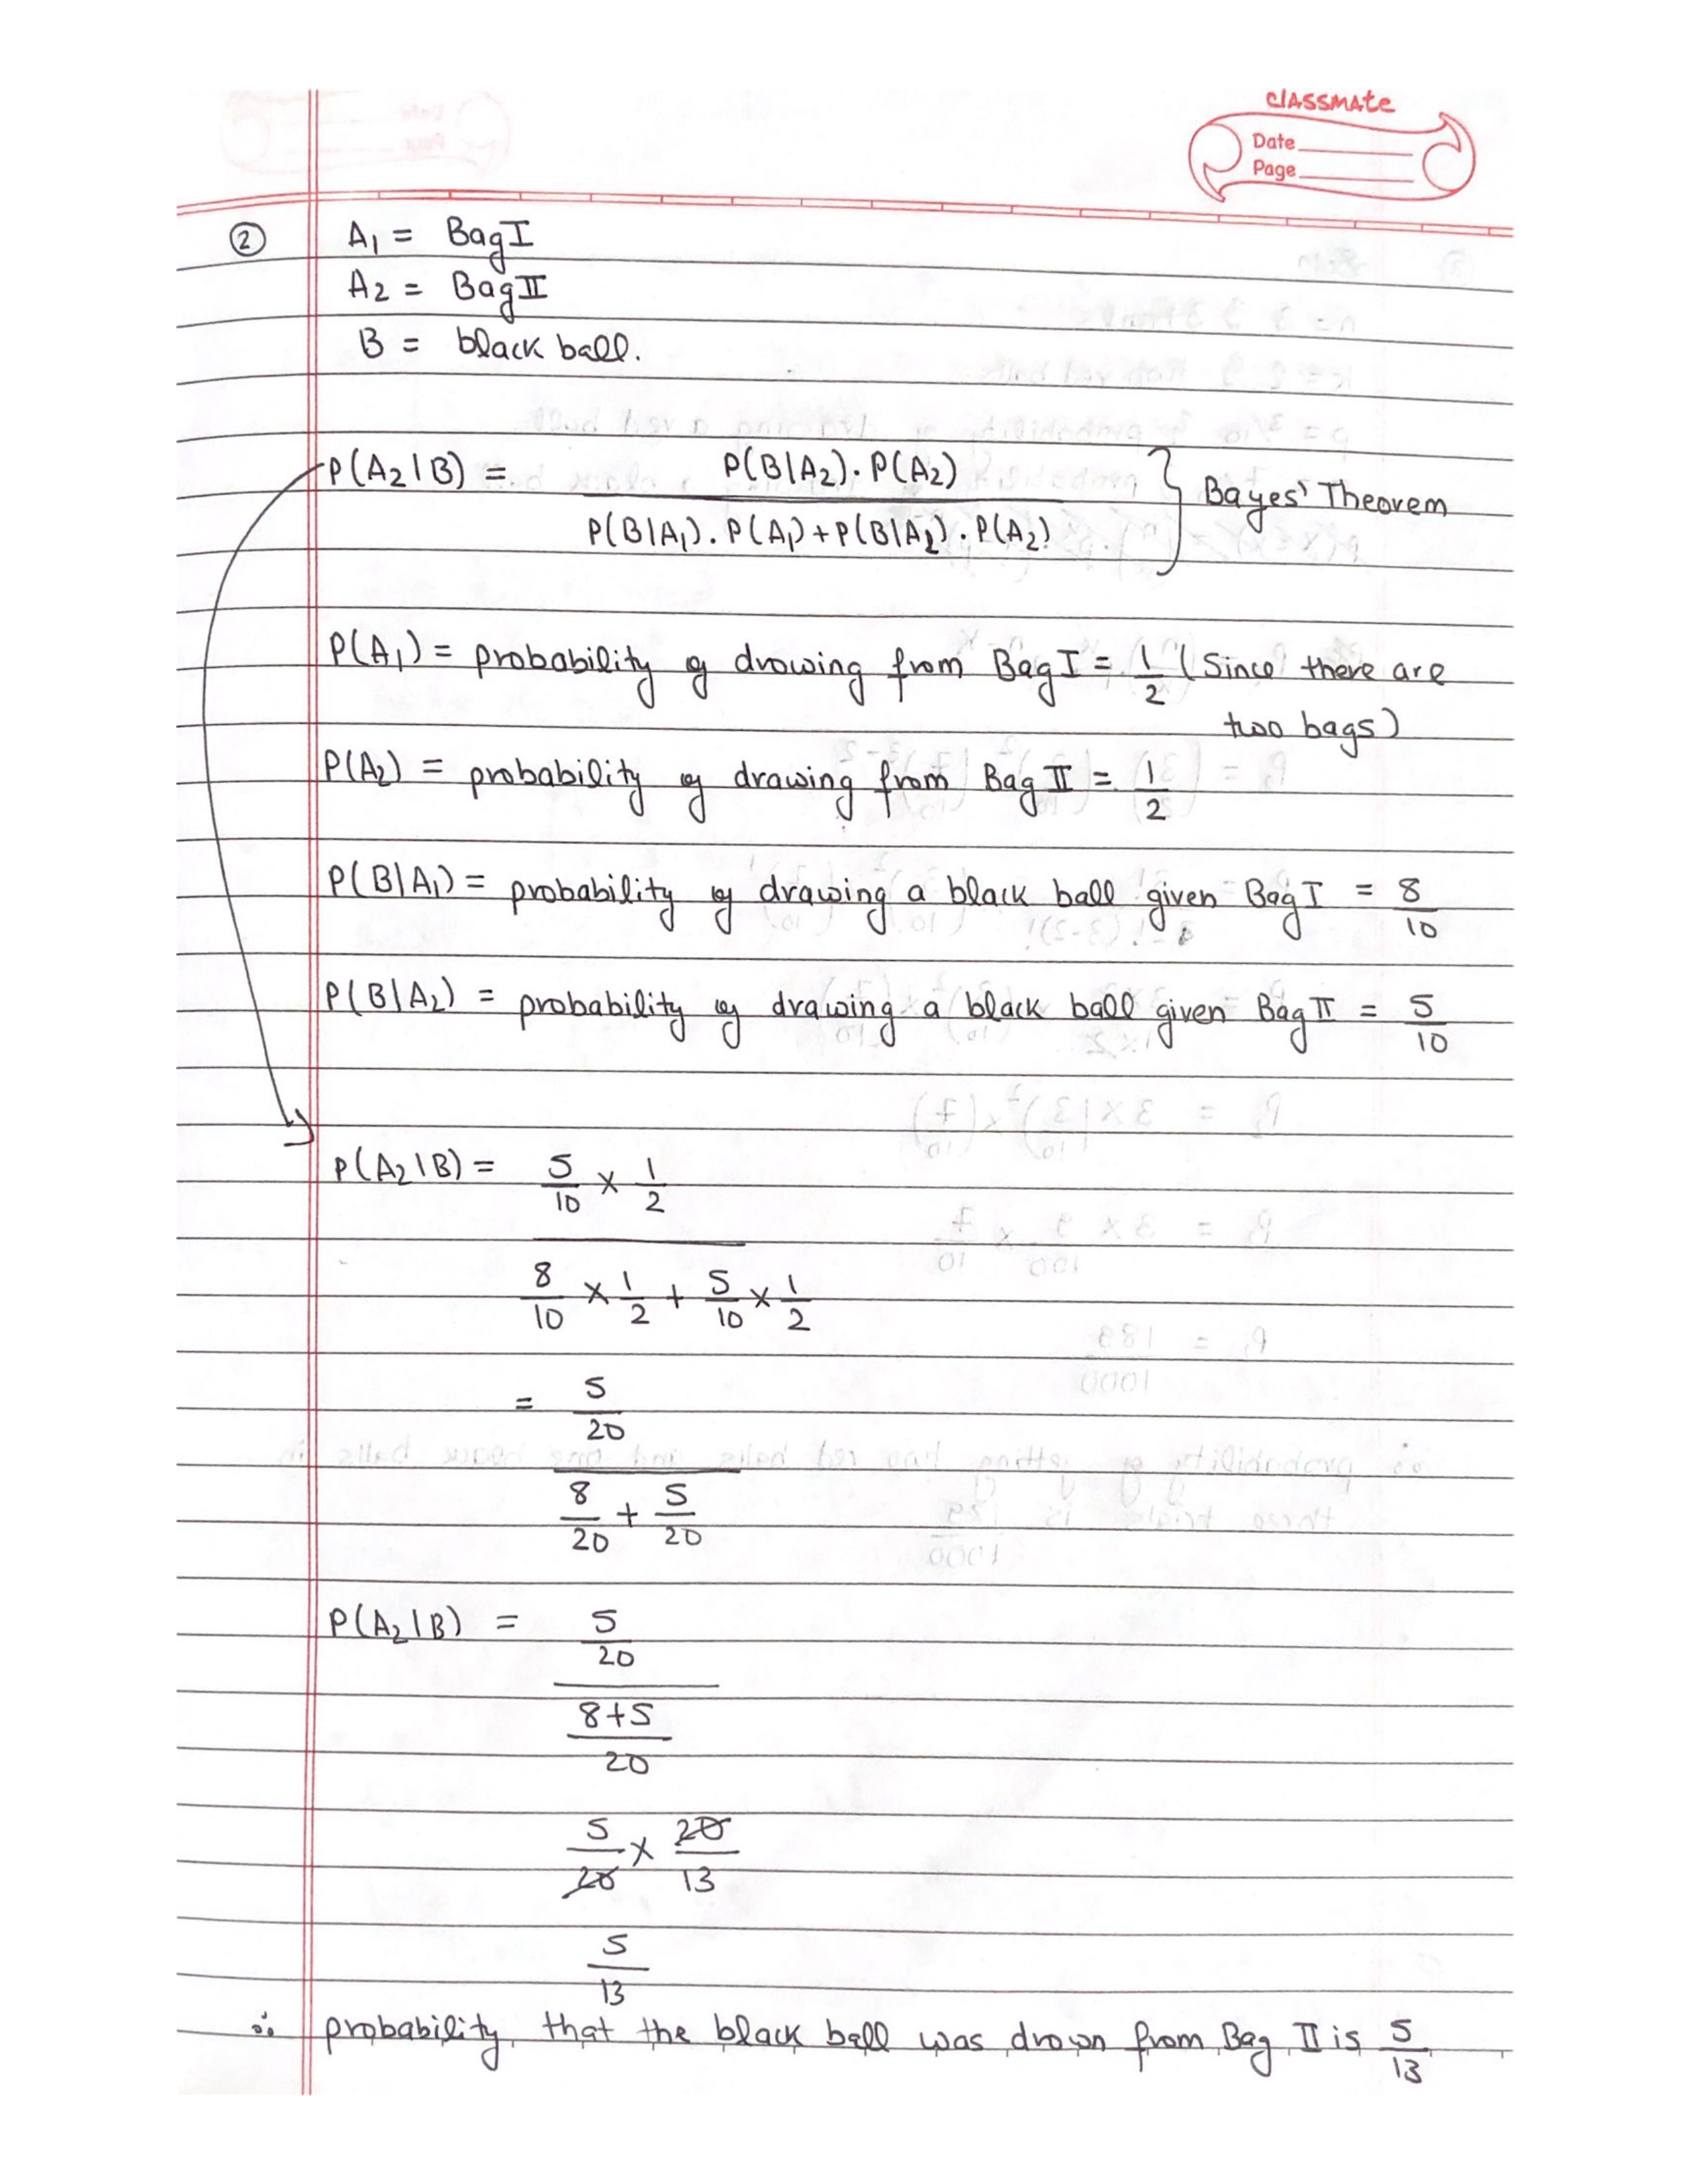 classmate
Date
Page
② A₁ = Bag I
A₂ = Bag II
B = black ball.
P(A₂|B) = P(B|A₂). P(A₂) / P(B|A₁). P(A₁) + P(B|A₂). P(A₂) } Bayes' Theorem
P(A₁) = probability of drowing from Bag I = 1/2 (Since there are
two bags)
P(A₂) = probability of drawing from Bag II = 1/2
P(B|A₁) = probability of drawing a black ball given Bag I = 8/10
P(B|A₂) = probability of drawing a black ball given Bag II = 5/10
P(A₂|B) = 5/10 × 1/2
8/10 × 1/2 + 5/10 × 1/2
= 5/20
8/20 + 5/20
P(A₂|B) = 5/20
8+5/20
5/20 × 20/13
5/13
∴ probability that the black ball was drown from Bag II is 5/13